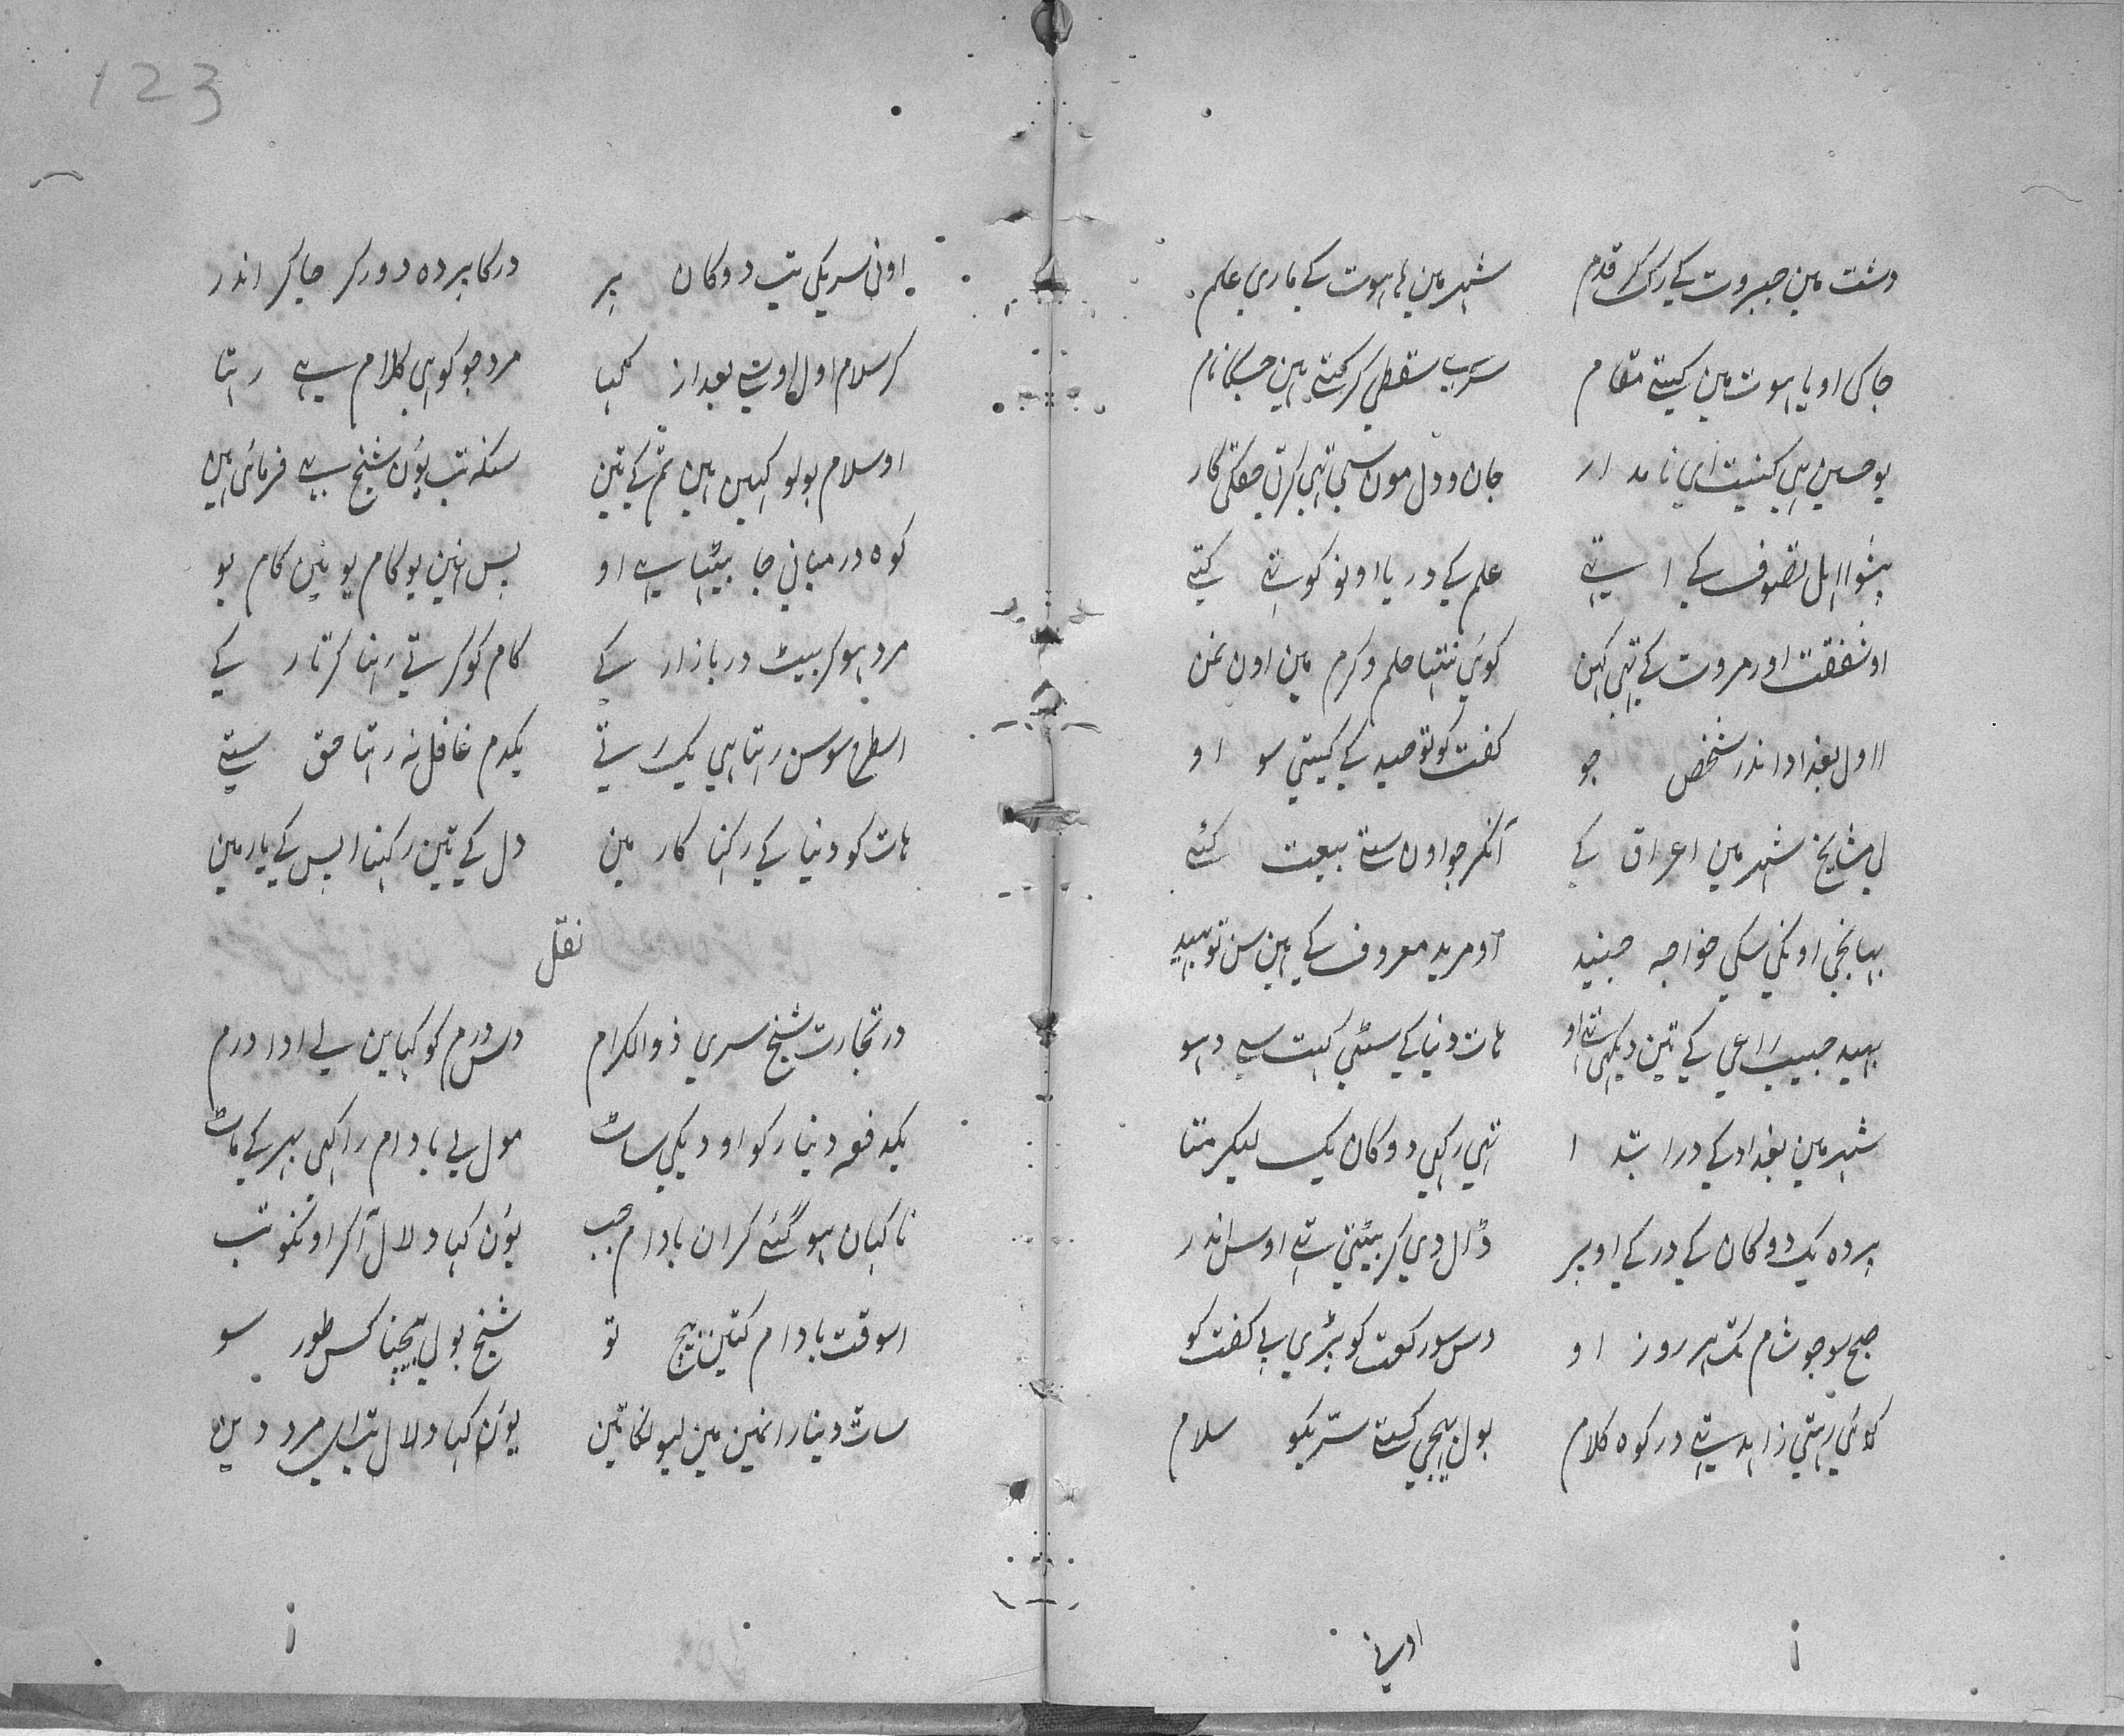 دشت مین جبروت کے رک کر قدم شہر مین لاہوت کے ماری علم
جاکی او یاہوت مین کیتے مقام سری سقطی کر کہتے ہین جسکا نام
یو حسین ہی کنیت ای نامدار جان و دل مون سی تہی کرتی حقکی کار
پیشوا اہل تصوف کے اتہے علم کے دریا اونو کوں تے کیتے
او شفقت اور مروت کے تہی کہن کوئی نتہا حلم و کرم مین اون نمن
اول بغداد اندر شخص جو کفت کو توحید کے کیتی سو او
لی مشایخ شہر مین اعراق کے آنکر جو اون ستے بیعت کئے
بہانجی اونکی سکی خواجہ جنید او مرید معروف کے ہین سن تو بہید
بہید حبیب راعی کے تین دیکہی اتہے او ہات دنیا کے سٹی کیت سے دہو
شہر مین بغداد کے در ابتدا تہی رکہی دوکان یک لیکر متا
پردہ یک دوکان کے در کے اوپر ڈال دی کر بیٹتی تہے اوس اندر
صبح سو جو شام تک ہر روز او دس سو رکعت کو پڑی بی کفت کو
کوئی رہتی زاہد تہے در کوہ کلام بول بہیجی کستے سریکو سلام
اوسنے
اونی سریکی تب دوکان پر در کا پردہ دور کر جاکر اندر
کر سلام اول اوسے بعد از کہیا مرد جو کوہی کلام سے رہتا
او سلام بولو کہین ہین تم کے تین سنکہ تب یون شیخ سے فرمائی ہین
کوہ درمیانی جا بیٹہا ہے او بس نہین یو کام یو نہین کام یو
مرد ہو کر بیٹ در بازار کے کام کو کرتے رہنا کرتار کے
اسطرح سوں رہتا ہی یک رتے یکدم غافل نہ رہتا حق ستے
ہات کو دنیا کے رکنا کار مین دل کے تین رکہنا اپس کے یار مین
نقل
در تجارت شیخ سری ذوالکرام دس درم کو کہا ہین لے ادا درم
یکدفعہ دینار کو او دیکی ساٹ مول لی بادام راکہی بہر کے ہاٹ
ناکہان ہو گئے کران بادام جب یون کہیا دلال آکر اونکو تب
اسوقت بادام کتین بیچ تو شیخ بولی بیچنا کس طور سو
ساٹ دینار انمین مین لیونکا تین یون کہیا دلال تب ای مرد دین
123